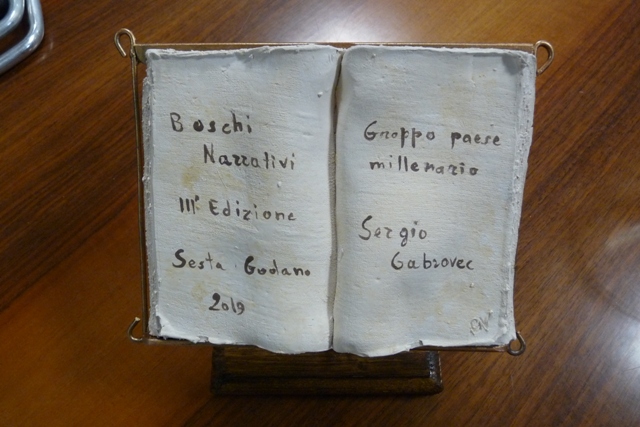 Boschi
Narrativi
III° Edizione
Sesta Godano
2019
Groppo paese
millenario
Sergio
Gabrovec